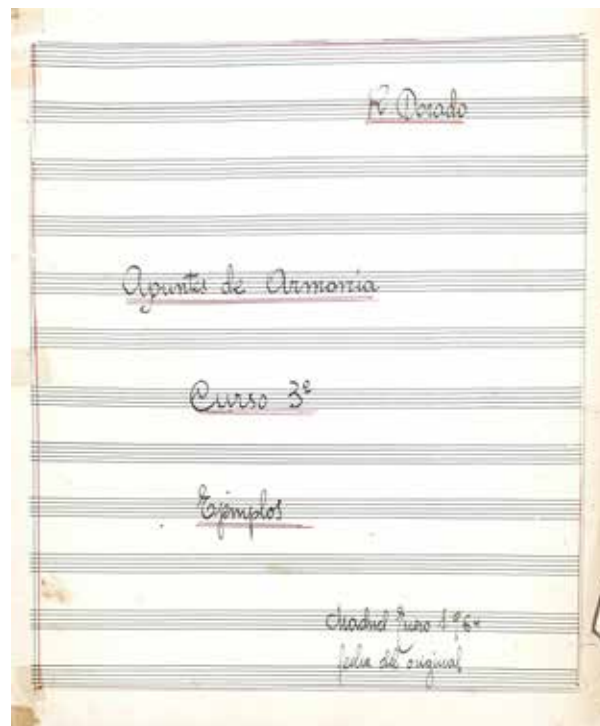 R. Dorado
Apuntes de Armonía
Curso 3º
Ejemplos
Madrid 1964
fecha del original